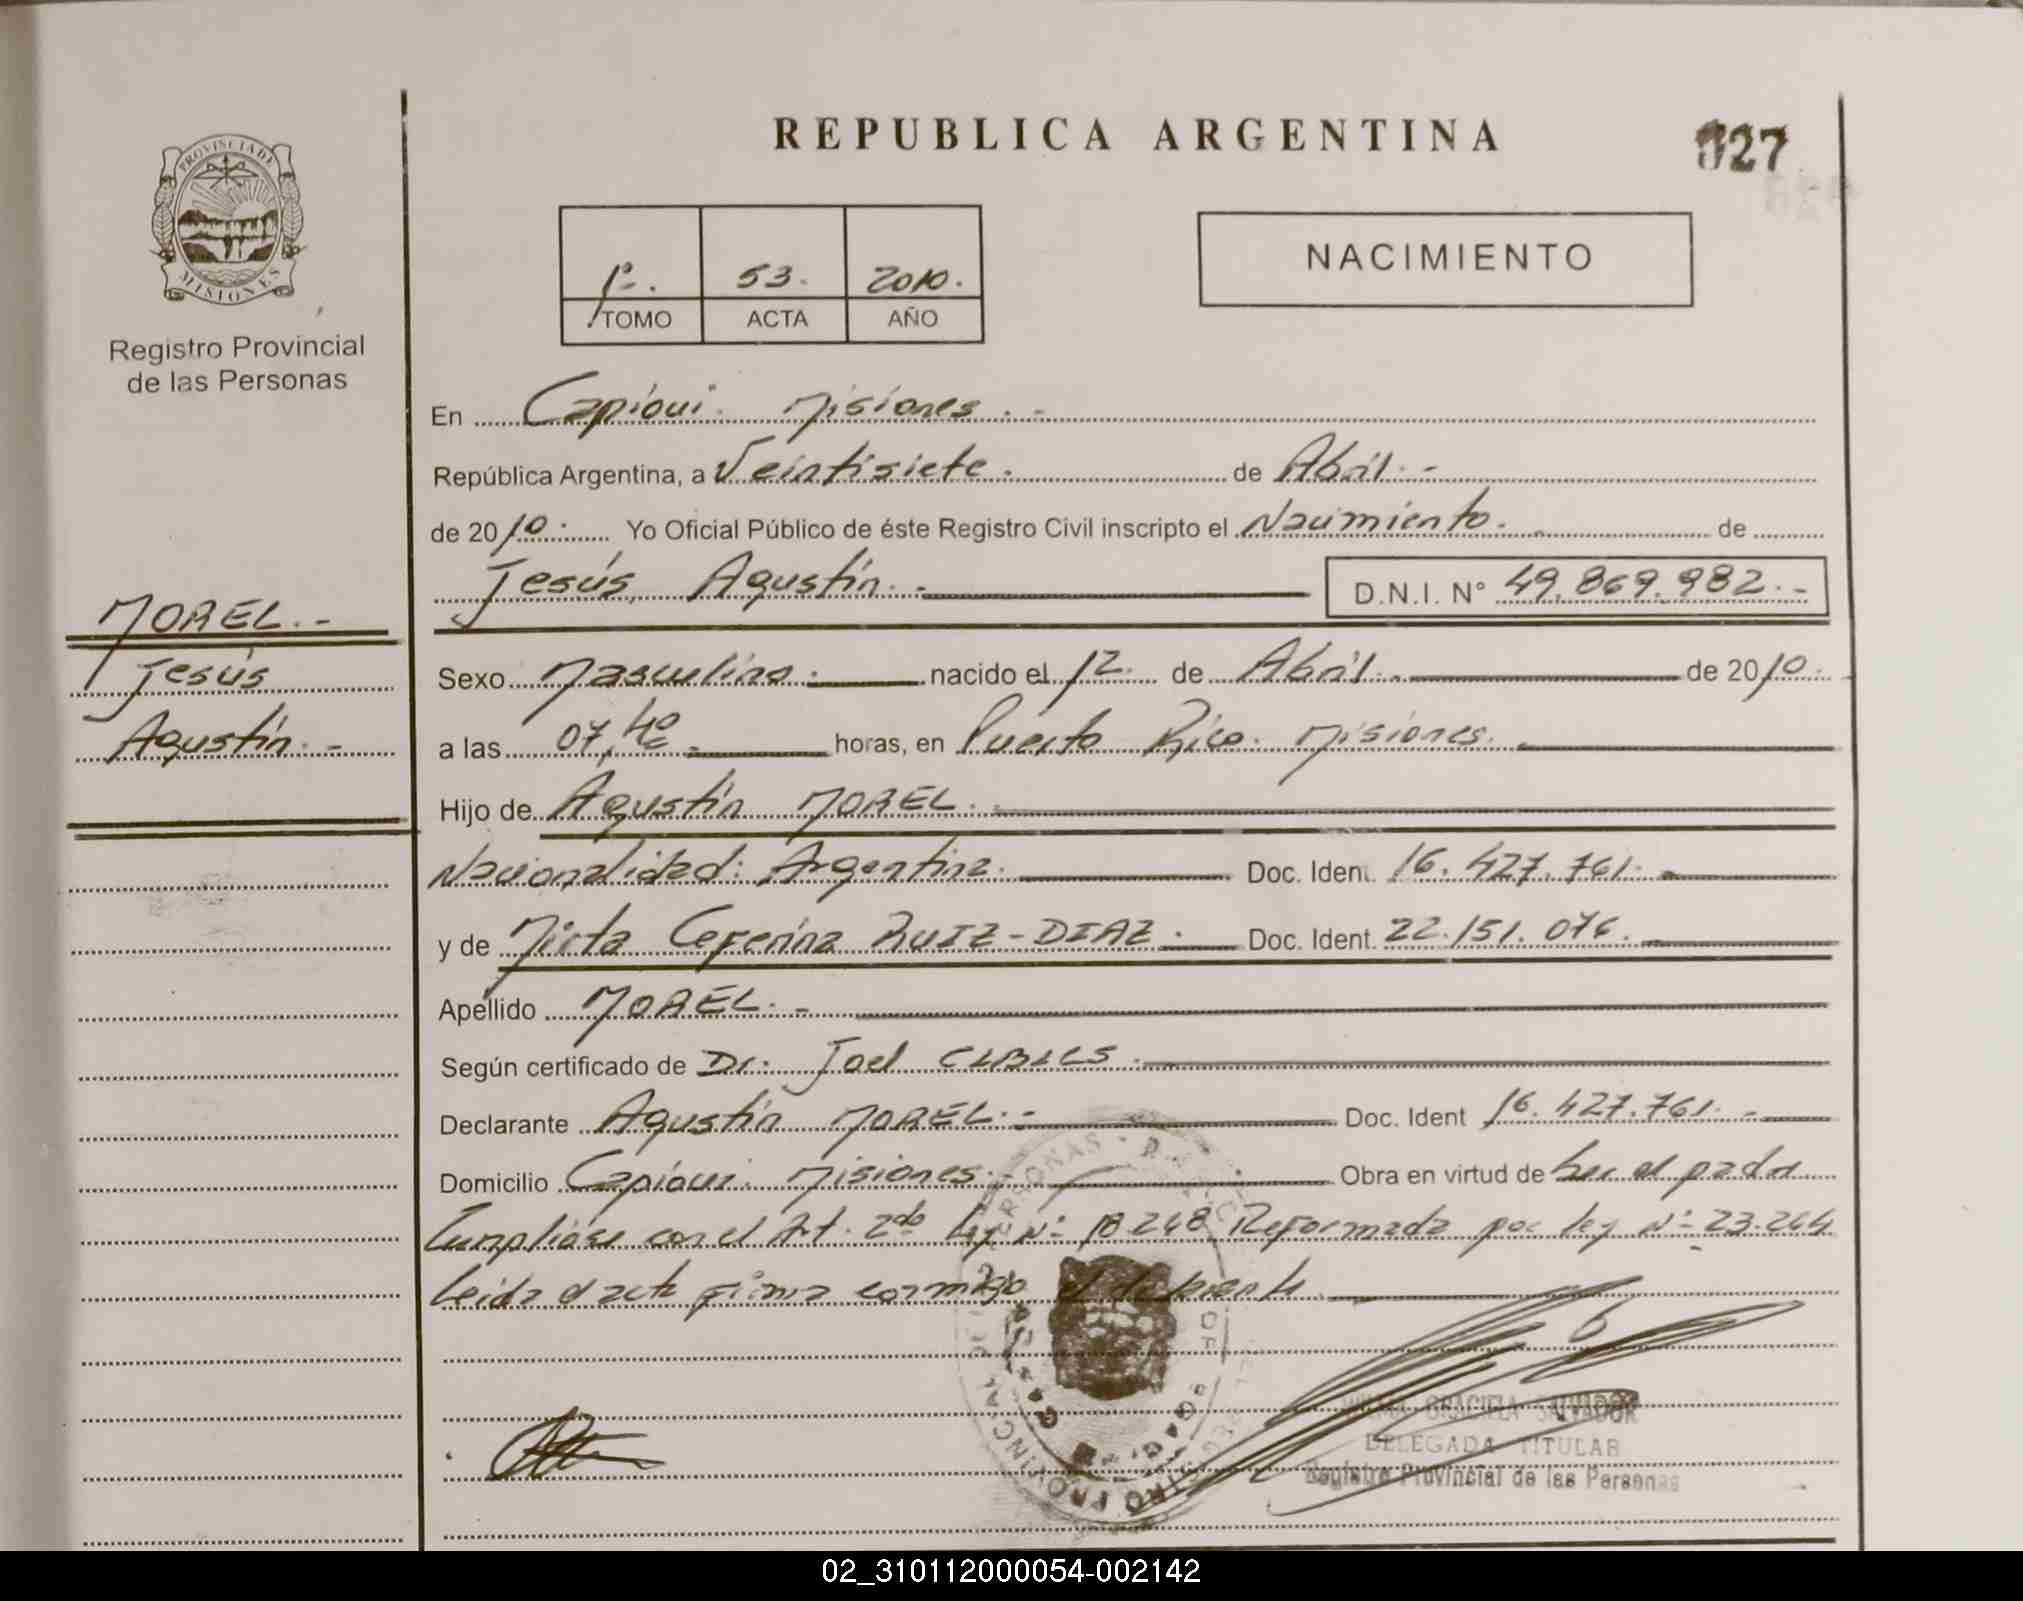 REPUBLICA ARGENTINA
027
PROVINCIA DE
MISIONES
Registro Provincial
de las Personas
1º. 53. 2010.
TOMO ACTA AÑO
NACIMIENTO
En Capioui. Misiones. -
República Argentina, a Veintisiete. de Abril. -
de 2010. Yo Oficial Público de éste Registro Civil inscripto el Nacimiento. de
Jesús Agustín. - D.N.I. Nº 49.869.982. -
MOREL. -
Jesús
Agustín. -
Sexo Masculino. nacido el 12. de Abril. de 2010.
a las 07,40 horas, en Puerto Rico. Misiones.
Hijo de Agustín MOREL.
Nacionalidad: Argentina. Doc. Ident. 16.427.761.
y de Mirta Ceferina RUIZ-DIAZ. Doc. Ident. 22.151.076.
Apellido MOREL. -
Según certificado de Dr. Joel
Declarante Agustín MOREL. - Doc. Ident 16.427.761. -
Domicilio Capioui. Misiones. Obra en virtud de ser el padre
Cumpliose con el Art. 2do Ley Nº 18248 Reformada por ley Nº 23.264
Leida el acta firma conmigo el
GRACIELA SALVADOR
DELEGADA TITULAR
Registro Provincial de las Personas
02_310112000054-002142